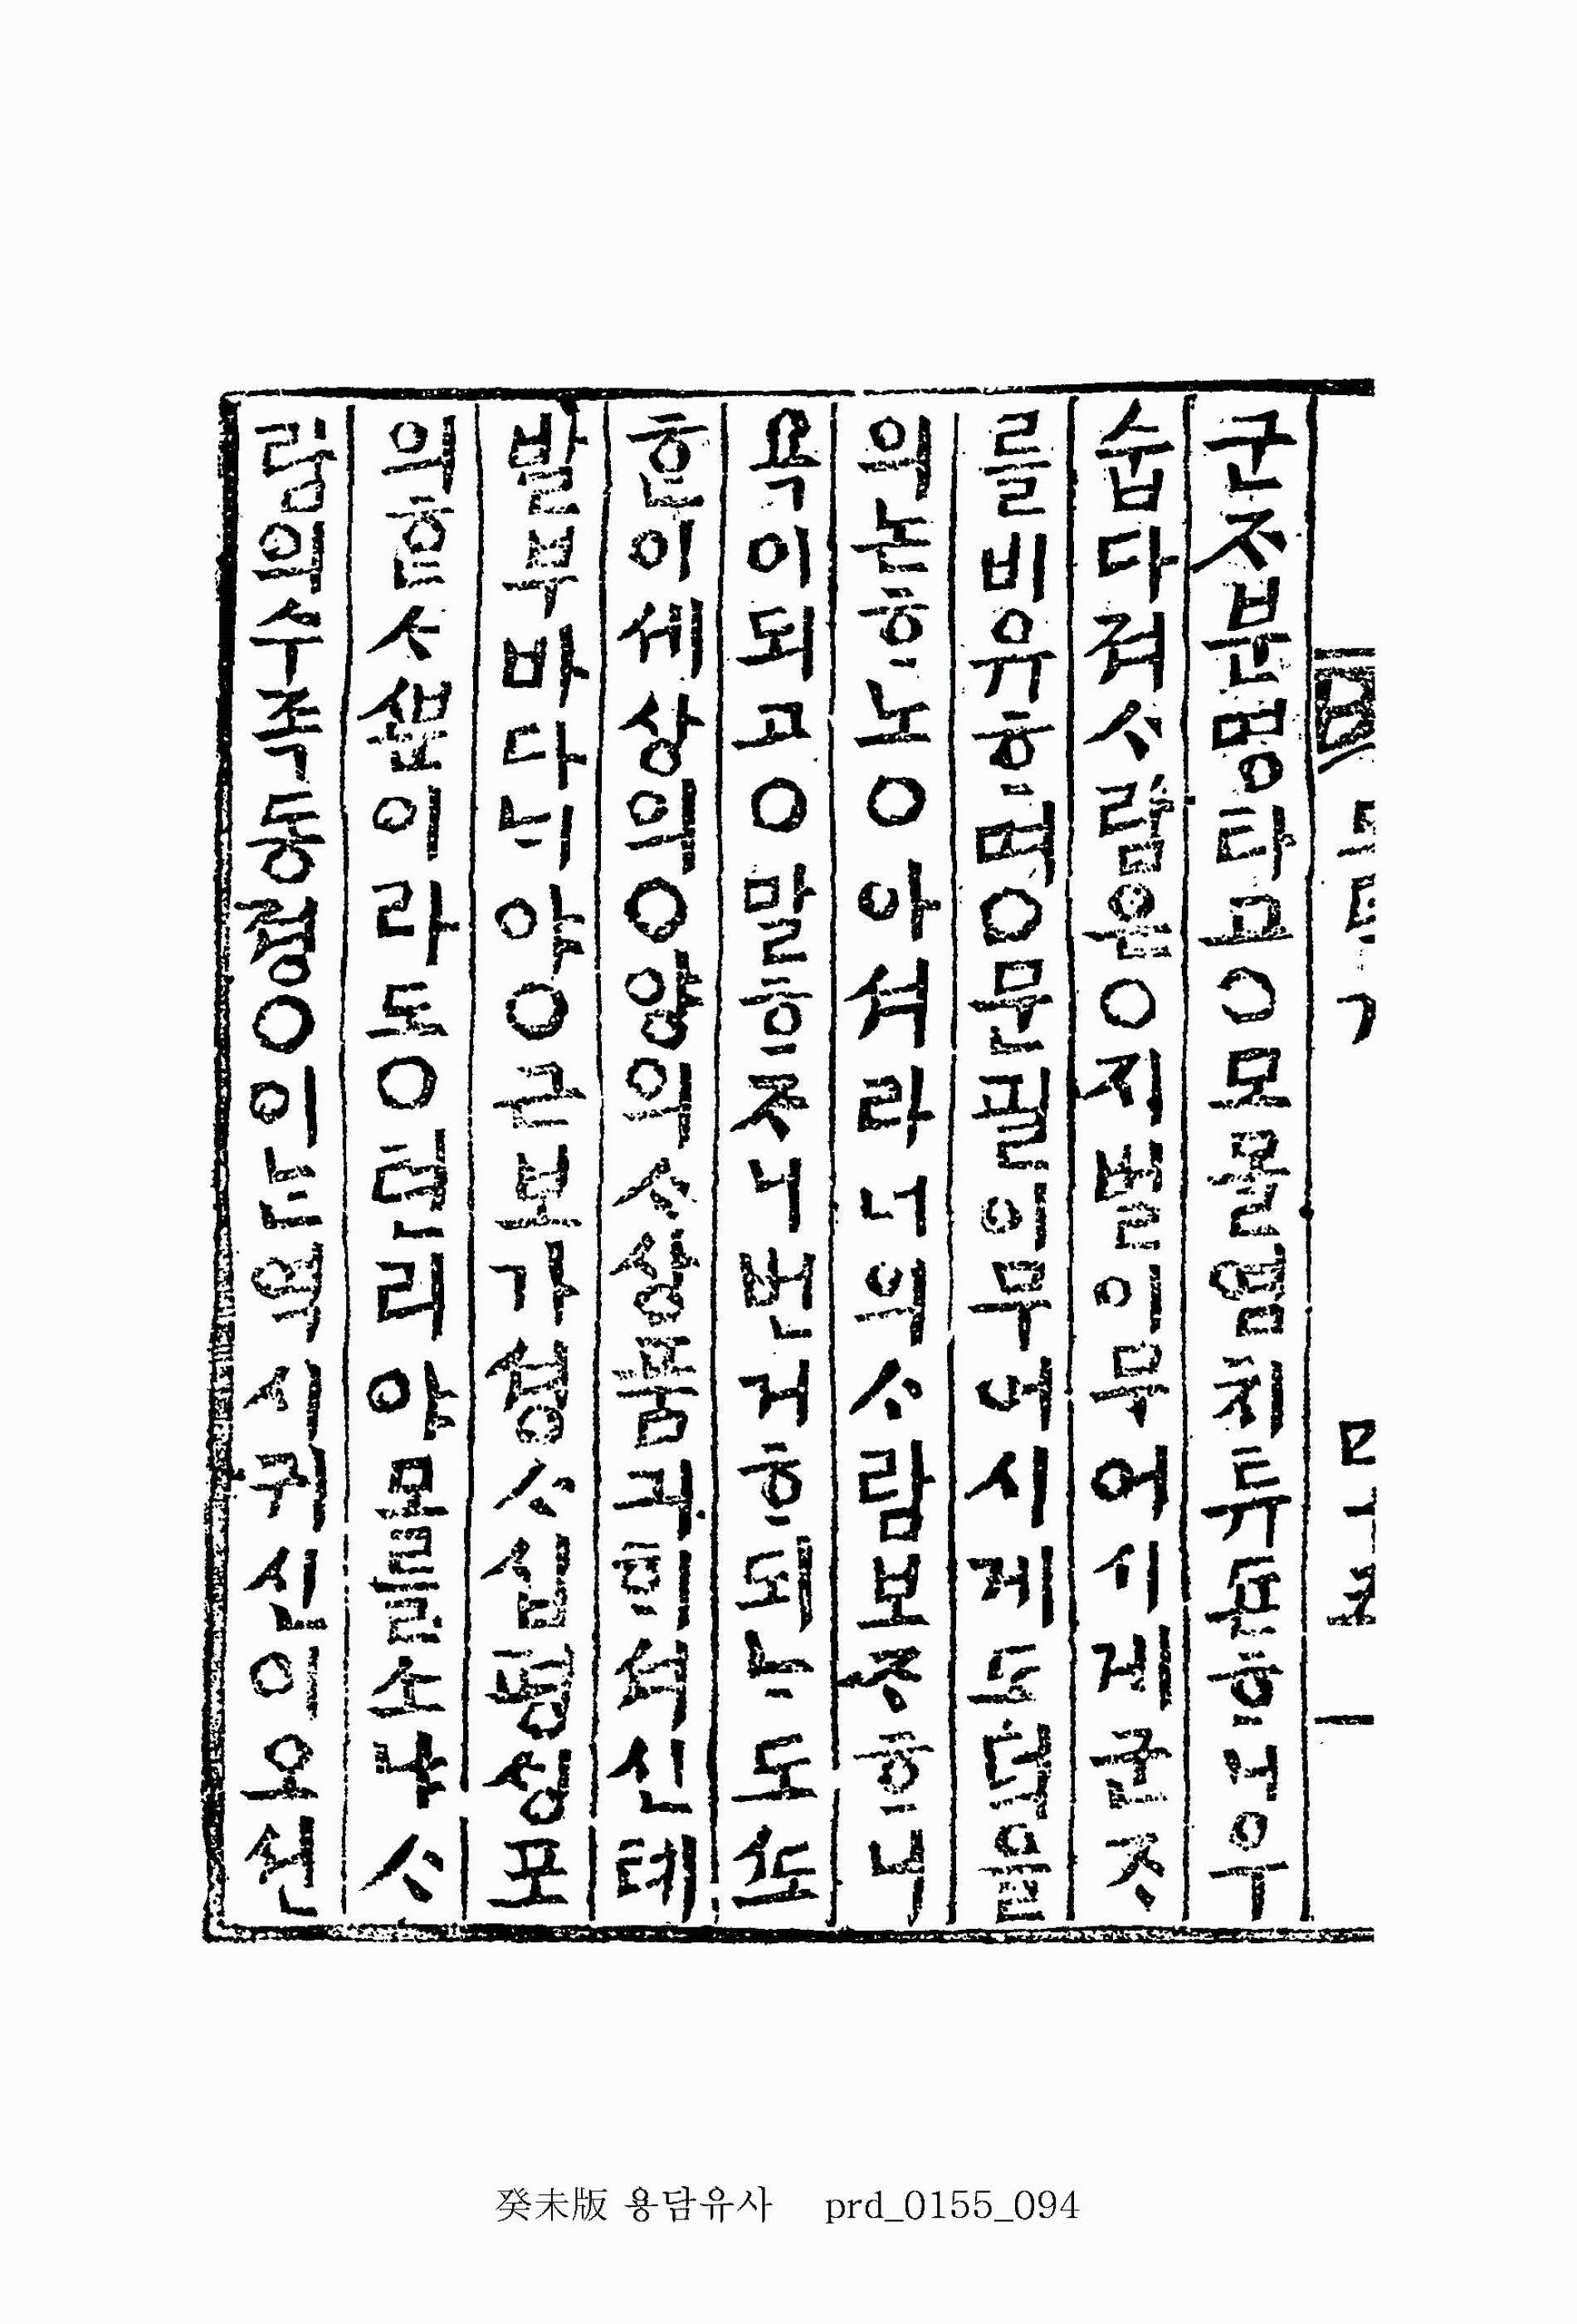 군ᄌᆞ분명타고○모몰염치튜존ᄒᆞ니우
숩다져ᄉᆞ람은○지벌이무어시게군ᄌᆞ
를비유ᄒᆞ며○문필이무어시게도덕을
의논ᄒᆞ노○아셔라너의ᄉᆞ람보ᄌᆞᄒᆞ니
욕이되고○말ᄒᆞᄌᆞ니번거ᄒᆞ되ᄂᆞ도ᄯᅩ
ᄒᆞᆫ이세상의○양의ᄉᆞ상품긔ᄒᆡ셔신톄
발부바다ᄂᆡ야○근보가셩ᄉᆞ십평싱포
의ᄒᆞᆫᄉᆞᄲᅮᆫ이라도○텬리야모를소냐ᄉᆞ
람의수족동졍○이ᄂᆞᆫ역시귀신이오션
癸未版 용담유사 prd_0155_094